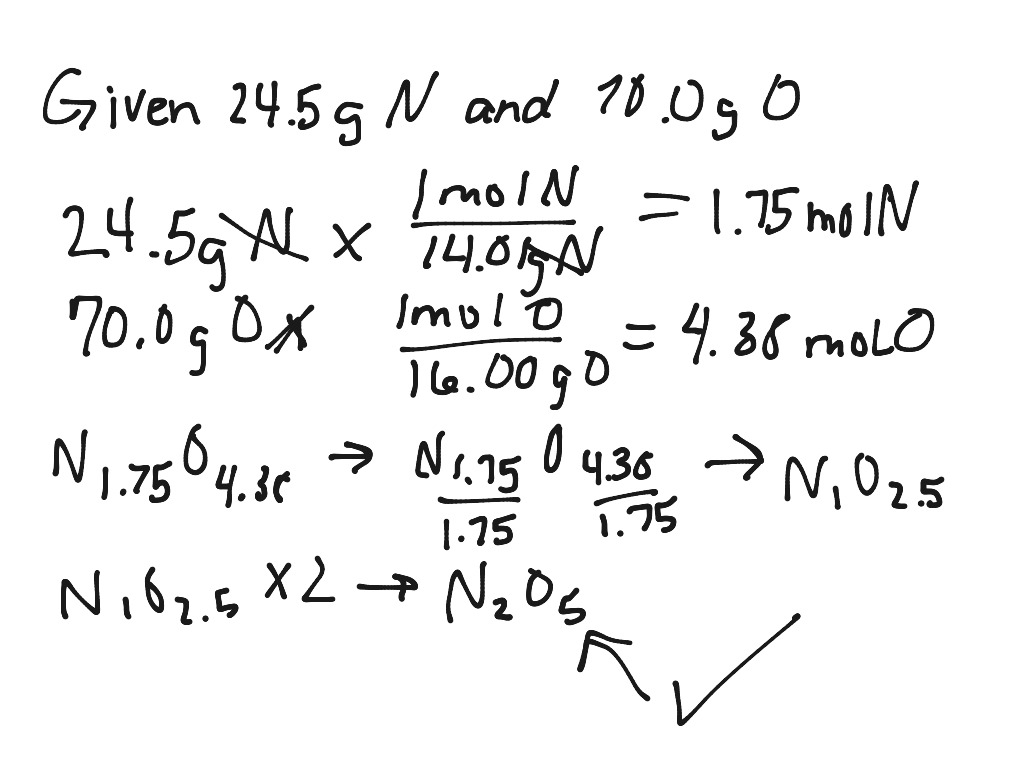 Given 24.5g N and 70.0g O
24.5g N x 1 mol N / 14.01g N = 1.75 mol N
70.0g O x 1 mol O / 16.00 g O = 4.38 mol O
N1.75 O4.38 → N1.75/1.75 O4.38/1.75 → N1O2.5
N1O2.5 x2 → N2O5